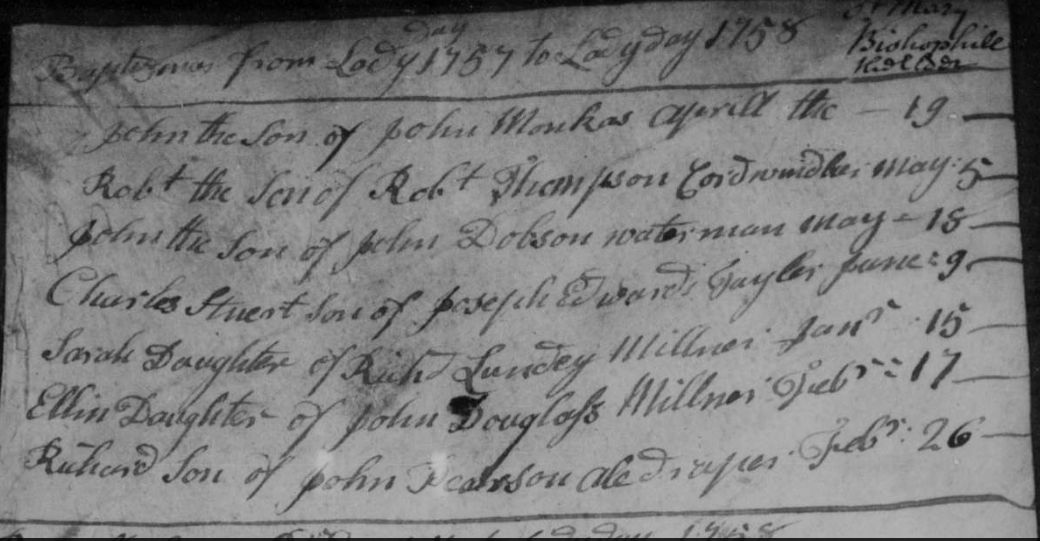 St Mary
Bishophill
the Elder
Baptizmes from Lady Day 1757 to Lady day 1758
John the Son of John Monkas Aprill the - 19
Robt the Son of Robt Thompson Cordwindler may: 5
John the Son of John Dobson waterman may - 18
Charles Stuert Son of Joseph Edwards Tayler June: 9
Sarah Daughter of Richd Lundey Millner Janr 15
Ellin Daughter of John Douglass Millner Febr: 17
Richard Son of John Pearson Ale Draper Febr: 26
day 1758